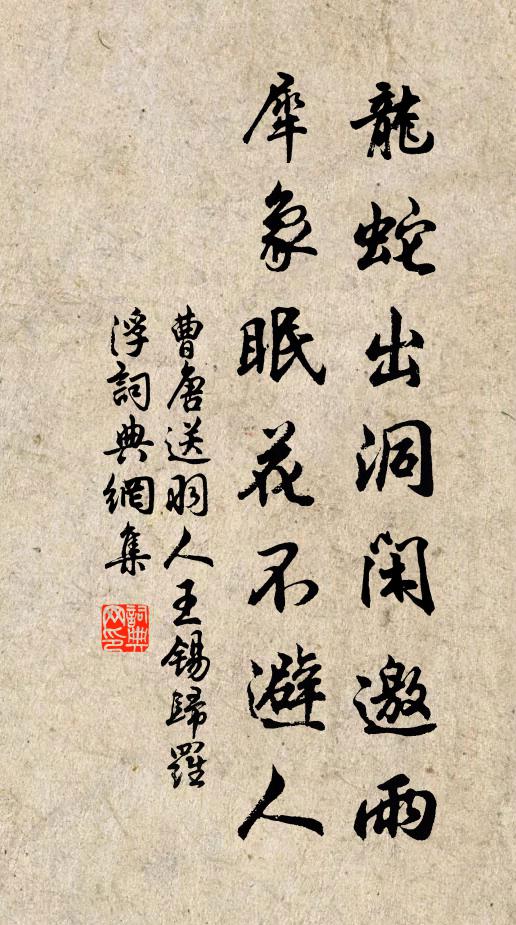 龍蛇出洞閑邀雨
犀象眠花不避人
曹唐送羽人王錫歸羅
浮詞典網集
詞典網印